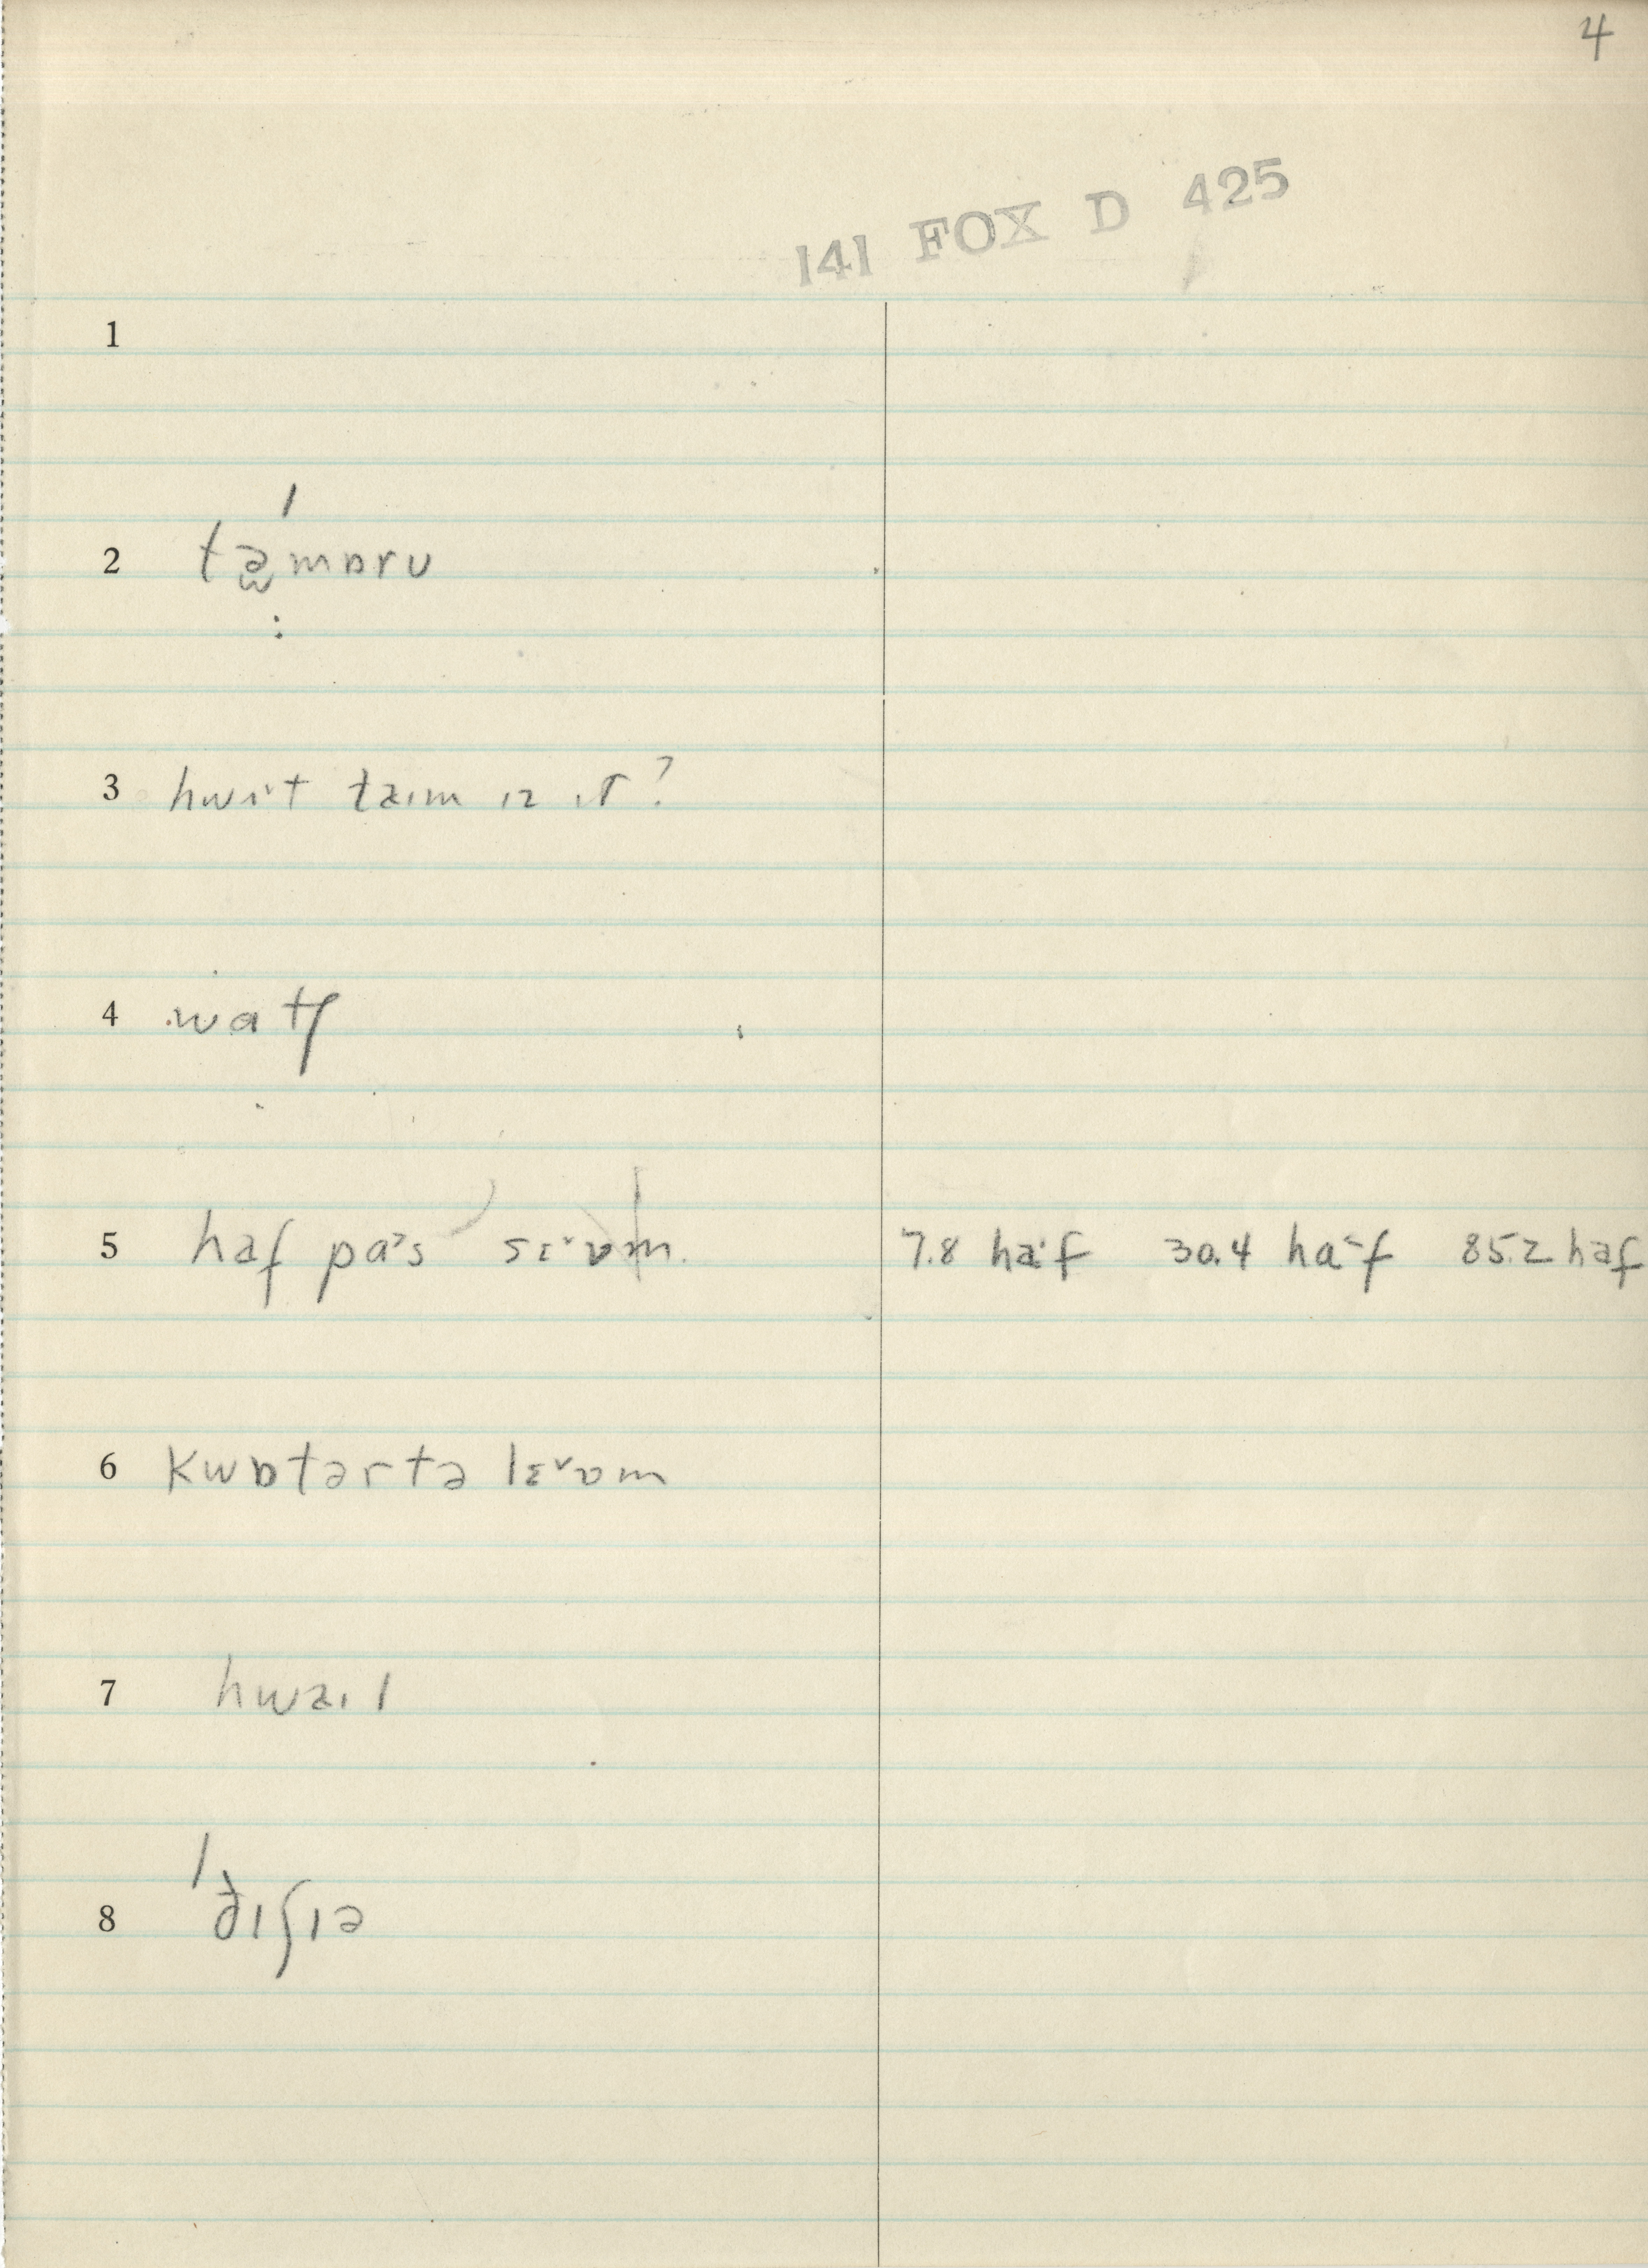 4
141 FOX D 425
1
2 tə̮mɒru
3 hwɪt taɪm ɪz ɪt?
4 watʃ
5 haf pa's sɛˇʋm. 7.8 ha·f 30.4 haˇf 85.2 haf
6 Kwɒtərtə lɛˇʋm
7 hwaɪl
8 'ðɪʃɪə